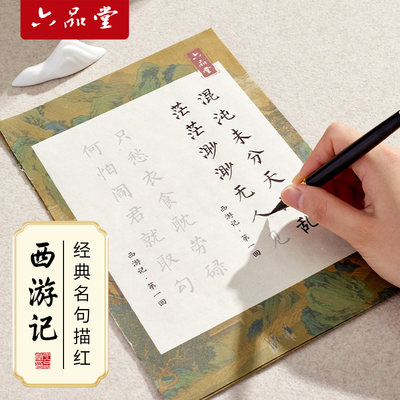 六品堂
六品堂
混沌未分天乱
茫茫渺渺无人见
西游记·第一回
只愁衣食耽劳碌
何怕阎君就取勾
西游记·第一回
经典名句描红
西游记